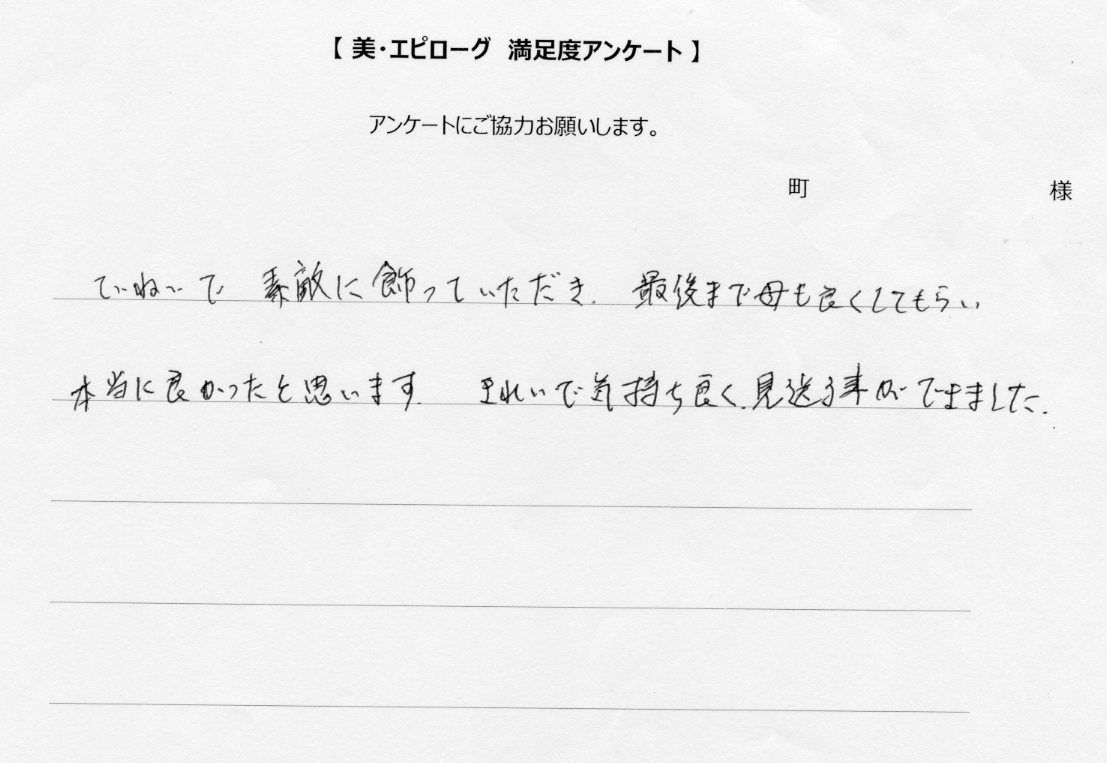 【 美・エピローグ 満足度アンケート 】
アンケートにご協力お願いします。
町 様
ていねいで 素敵に飾っていただき. 最後まで母も良くしてもらい
本当に良かったと思います. きれいで気持ち良く.見送る事ができました.